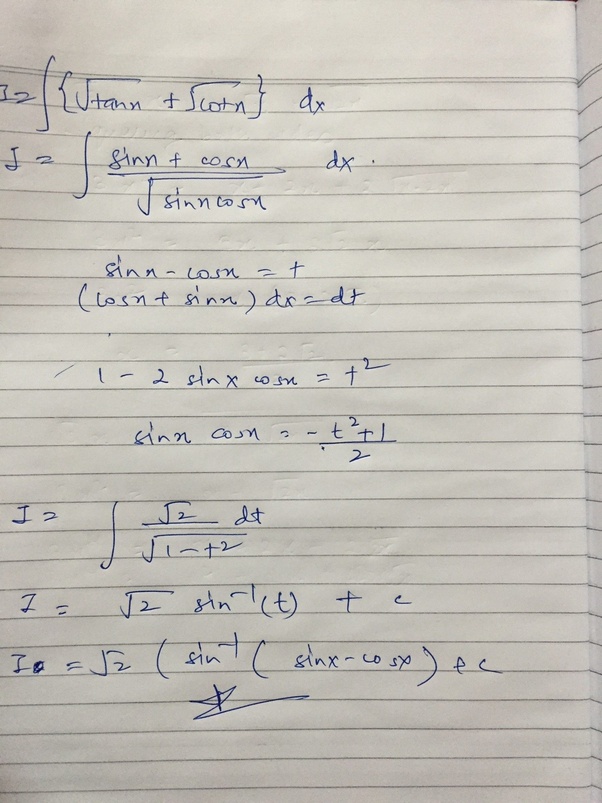 I = ∫ {√tanx + √cotx} dx
I = ∫ sinx + cosx / √sinx cosx dx.
sinx - cosx = t
(cosx + sinx) dx = dt
1 - 2 sinx cosx = t²
sinx cosx = -t²+1 / 2
I = ∫ √2 / √1-t² dt
I = √2 sin⁻¹(t) + c
I = √2 ( sin⁻¹ ( sinx-cosx) + c